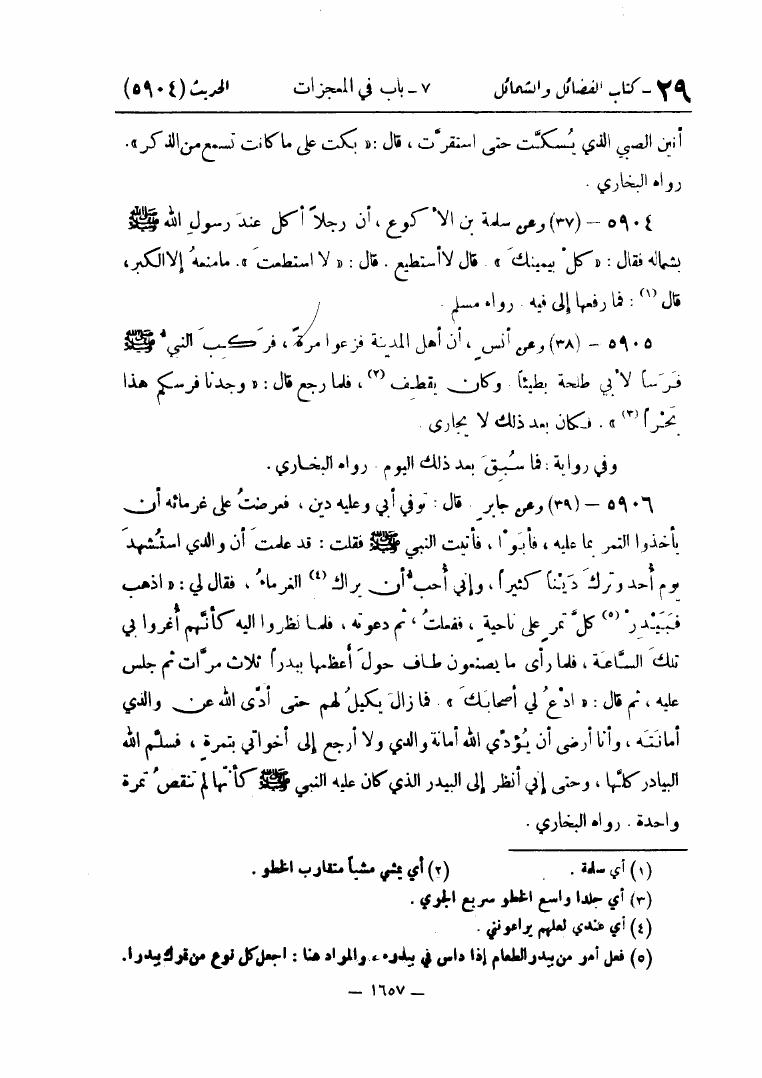 ٢٩ - كتاب الفضائل والشمائل ٧ - باب في المعجزات الحديث (٥٩٠٤)
أنين الصبي الذي يُسكَّت حتى استقرَّت ، قال : « بكت على ما كانت تسمع من الذكر ».
رواه البخاري .
٥٩٠٤ – (٣٧) وعن سلمة بن الأكوع ، أن رجلاً أكل عندَ رسولِ الله ﷺ
بشماله فقال : « كلْ بيمينكَ » . قال لا أستطيع . قال : « لا استطعتَ ». ما منعهُ إلا الكبر ،
قال (١) : فما رفعها إلى فيه . رواه مسلم .
٥٩٠٥ – (٣٨) وعن أنسٍ ، أن أهل المدينة فزعوا مرةً ، فركبَ النبيُّ ﷺ
فَرَساً لأبي طلحة بطيئاً وكان يقطِف (٢) ، فلما رجع قال : « وجدنا فرسكم هذا
بَحْراً (٣) » . فكان بعد ذلك لا يجارى .
وفي رواية : فما سُبِقَ بعد ذلك اليوم . رواه البخاري .
٥٩٠٦ – (٣٩) وعن جابرٍ . قال : توفي أبي وعليه دين ، فعرضتُ على غرمائه أن
يأخذوا التمر بما عليه ، فأبَوْا ، فأتيت النبي ﷺ فقلت : قد علمتَ أن والدي استُشهدَ
يوم أُحد وتركَ دَيْناً كثيراً ، وإني أُحبُّ أن يراك (٤) الغرماءُ ، فقال لي : « اذهب
فَبَيْدِرْ (٥) كلَّ تمرٍ على ناحيةٍ ، ففعلتُ ، ثم دعوته ، فلما نظروا اليه كأنَّهم أُغروا بي
تلكَ السَّاعة ، فلما رأى ما يصنعون طاف حولَ أعظمها بيدراً ثلاث مرَّات ثم جلس
عليه ، ثم قال : « ادْعُ لي أصحابكَ » . فما زالَ يكيلُ لهم حتى أدَّى الله عن والدي
أمانَتَه ، وأنا أرضى أن يُؤدِّي الله أمانة والدي ولا أرجع إلى أخواتي بتمرةٍ ، فسلَّم الله
البيادر كلَّها ، وحتى إني أنظر إلى البيدر الذي كان عليه النبي ﷺ كأنّها لم تنقصْ تمرة
واحدة . رواه البخاري .
(١) أي سلمة . (٢) أي يمشي مشياً متقارب الخطو .
(٣) أي جلدا واسع الخطو سريع الجري .
(٤) أي عندي لعلهم يراعونني .
(٥) فعل أمر من بيدر الطعام إذا داس في بيدره ، والمراد هنا : اجعل كل نوع من تمرك بيدرا .
– ١٦٥٧ –